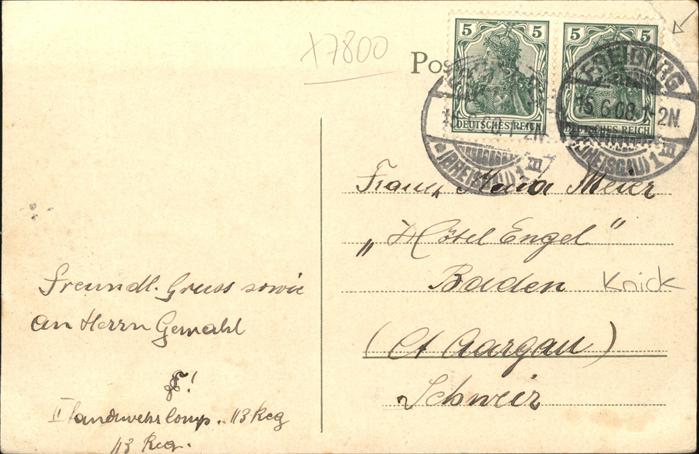 x7800
Pos
5 5 5 5
DEUTSCHES REICH DEUTSCHES REICH
FREIBURG
15.6.08.1-2N.
*(BREISGAU)1 m
*(BREISGAU)1 m
Frau Maier
„Hôtel Engel“
Baden
Knick
(Ct Aargau)
Schweiz
Freundl. Gruss sowie
an Herrn Gemahl
II Landwehrkomp. 113 Reg
113 Reg.